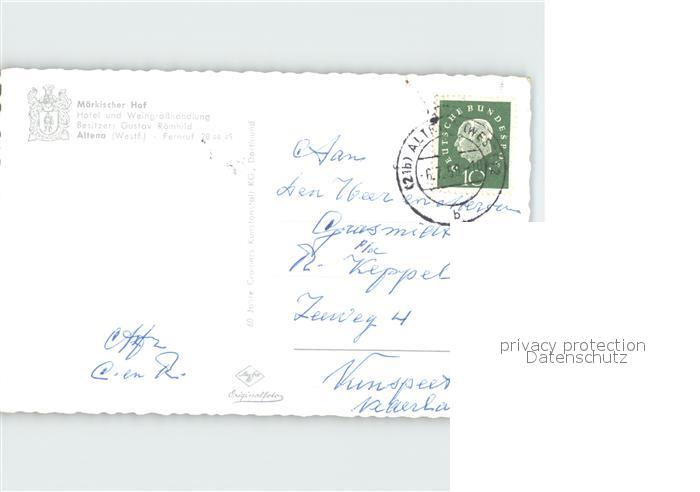 Märkischer Hof
Hotel und Weingroßhandlung
Besitzer: Gustav Römhild
Altena (Westf.) - Fernruf
60 Jahre Cramers Kunstanstalt KG., Dortmund
DEUTSCHE BUNDESPOST
10
(21b) ALTENA (WESTF
b
Aan
Den Heer en Mevrouw
Grasmidt
p/a
R. Keppel
Zeeweg 4
Nunspeet
Nederla
Afz
C. en R.
Agfa
Originalfoto
privacy protection
Datenschutz